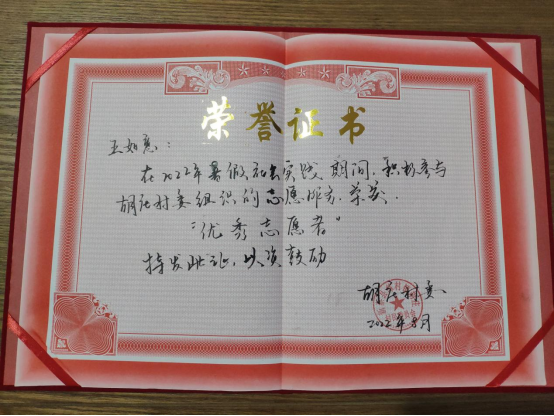 荣誉证书
王如意：
在2022年暑假社会实践期间，积极参与
胡庄村委组织的志愿服务，荣获
“优秀志愿者”
特发此证，以资鼓励
胡庄村委
2022年8月